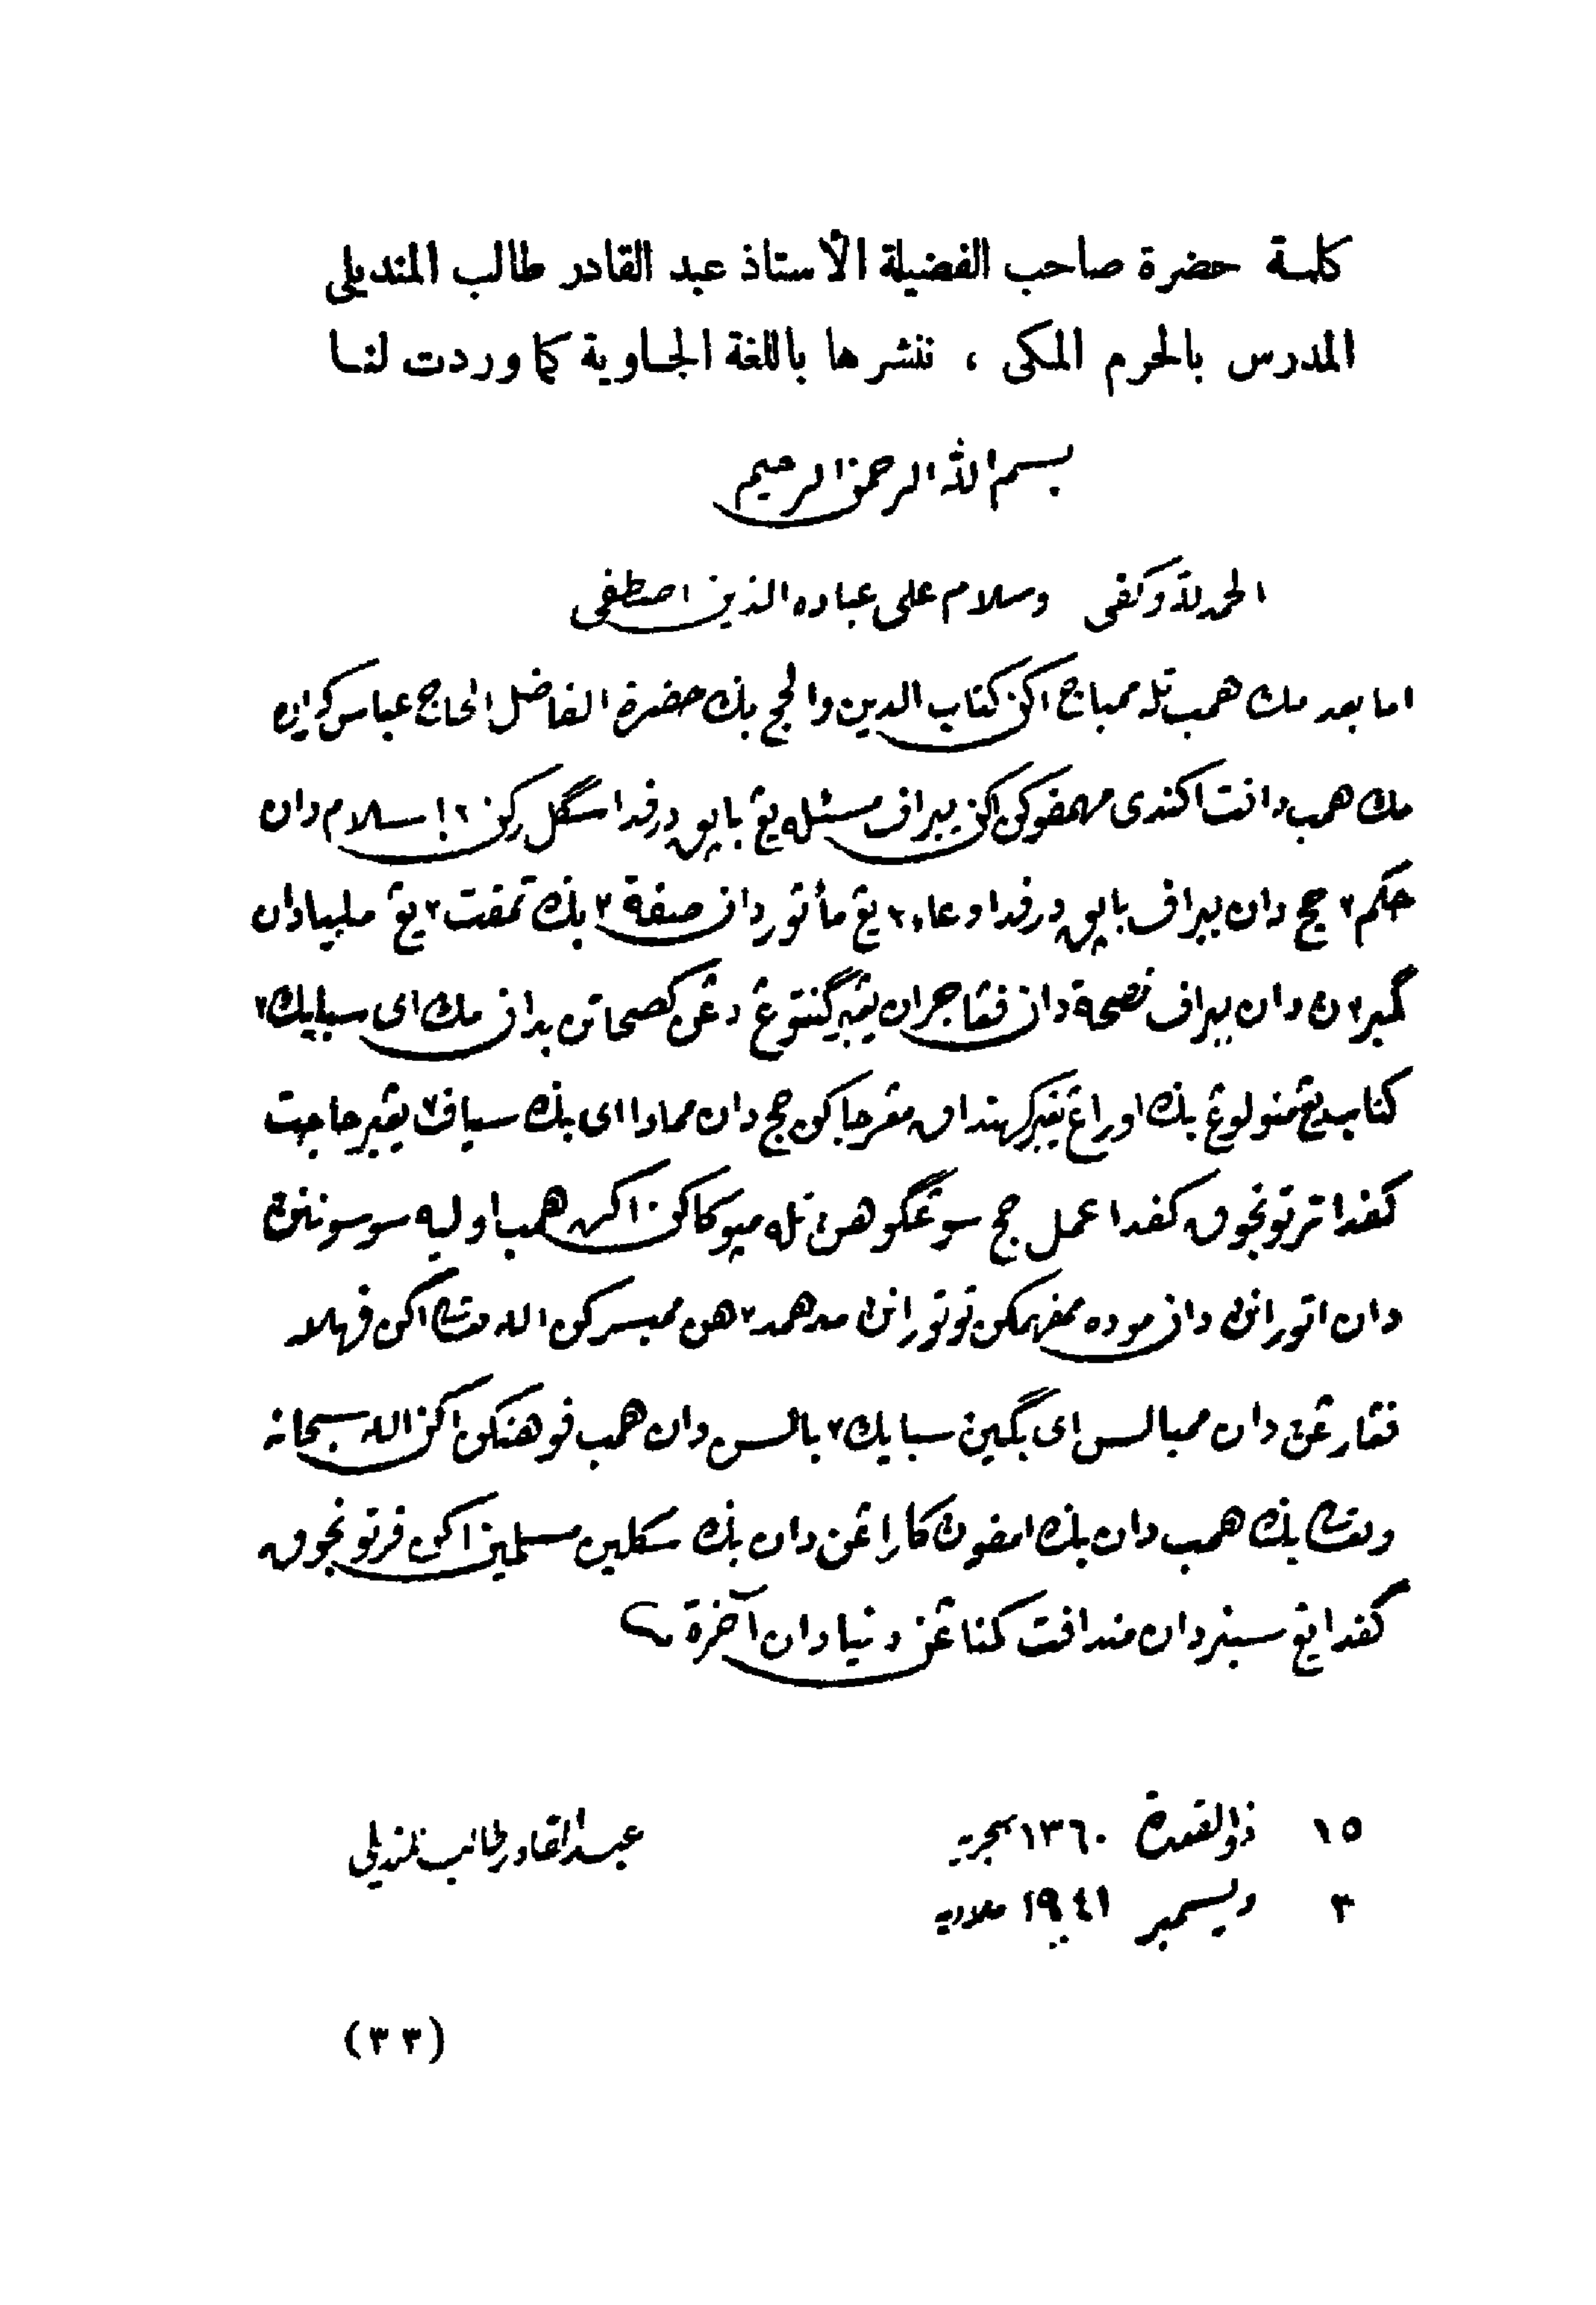 كلمة حضرة صاحب الفضيلة الأستاذ عبد القادر طالب المنديلى
المدرس بالحرم المكى ، ننشرها باللغة الجاوية كما وردت لنا
بسم الله الرحمن الرحيم
الحمد لله وكفى وسلام على عباده الذين اصطفى
اما بعد مك همب تله ممباچ اكن كتاب الدين والحج بݢ حضرة الفاضل الحاج عباس كراره
مك همب دافت اكندى مڠمفوكن اكن ببراف مسئله يڠ باپق درفدا سݢل ركن٢ إسلام دان
حكم٢ حج دان ببراف باپق درفدا دعاء٢ يڠ مأثور دان صفة٢ بݢ تمفت٢ يڠ مليا دان
ݢمبر٢ن دان ببراف نصيحة دان فڠاجران يڠ برݢنتوڠ دڠن كصحاتن بدان مك اى سبايك٢
كتاب يڠ منولوڠ بݢ اورڠ يڠ بركهندق مڠرجاكن حج دان ممادا اى بݢ سياف٢ يڠ برحاجت
كفدا ترتونجوق كفدا عمل حج سوڠݢوهن تله مپوكاكن اكن همب اوليه سوسوننن
دان اتوران دان موده مفهمكن توتوران مدهمد٢هن ممبسركن الله تعالى اكن فهلا
فڠارڠن دان ممبالس اى بݢين سبايك٢ بالس دان همب فوهنكن اكن الله سبحانه
وتعالى بݢ همب دان بݢ امفون كاراڠن دان بݢ سكلين مسلمين اكن فرتونجوق
كفدا يڠ سبنر دان مندافت كمناڠن دنيا دان آخرة
١٥ ذوالقعدة ١٣٦٠ هجرية
عبد القادر طالب المنديلى
٣ ديسمبر ١٩٤١ ميلادية
(٣٣)